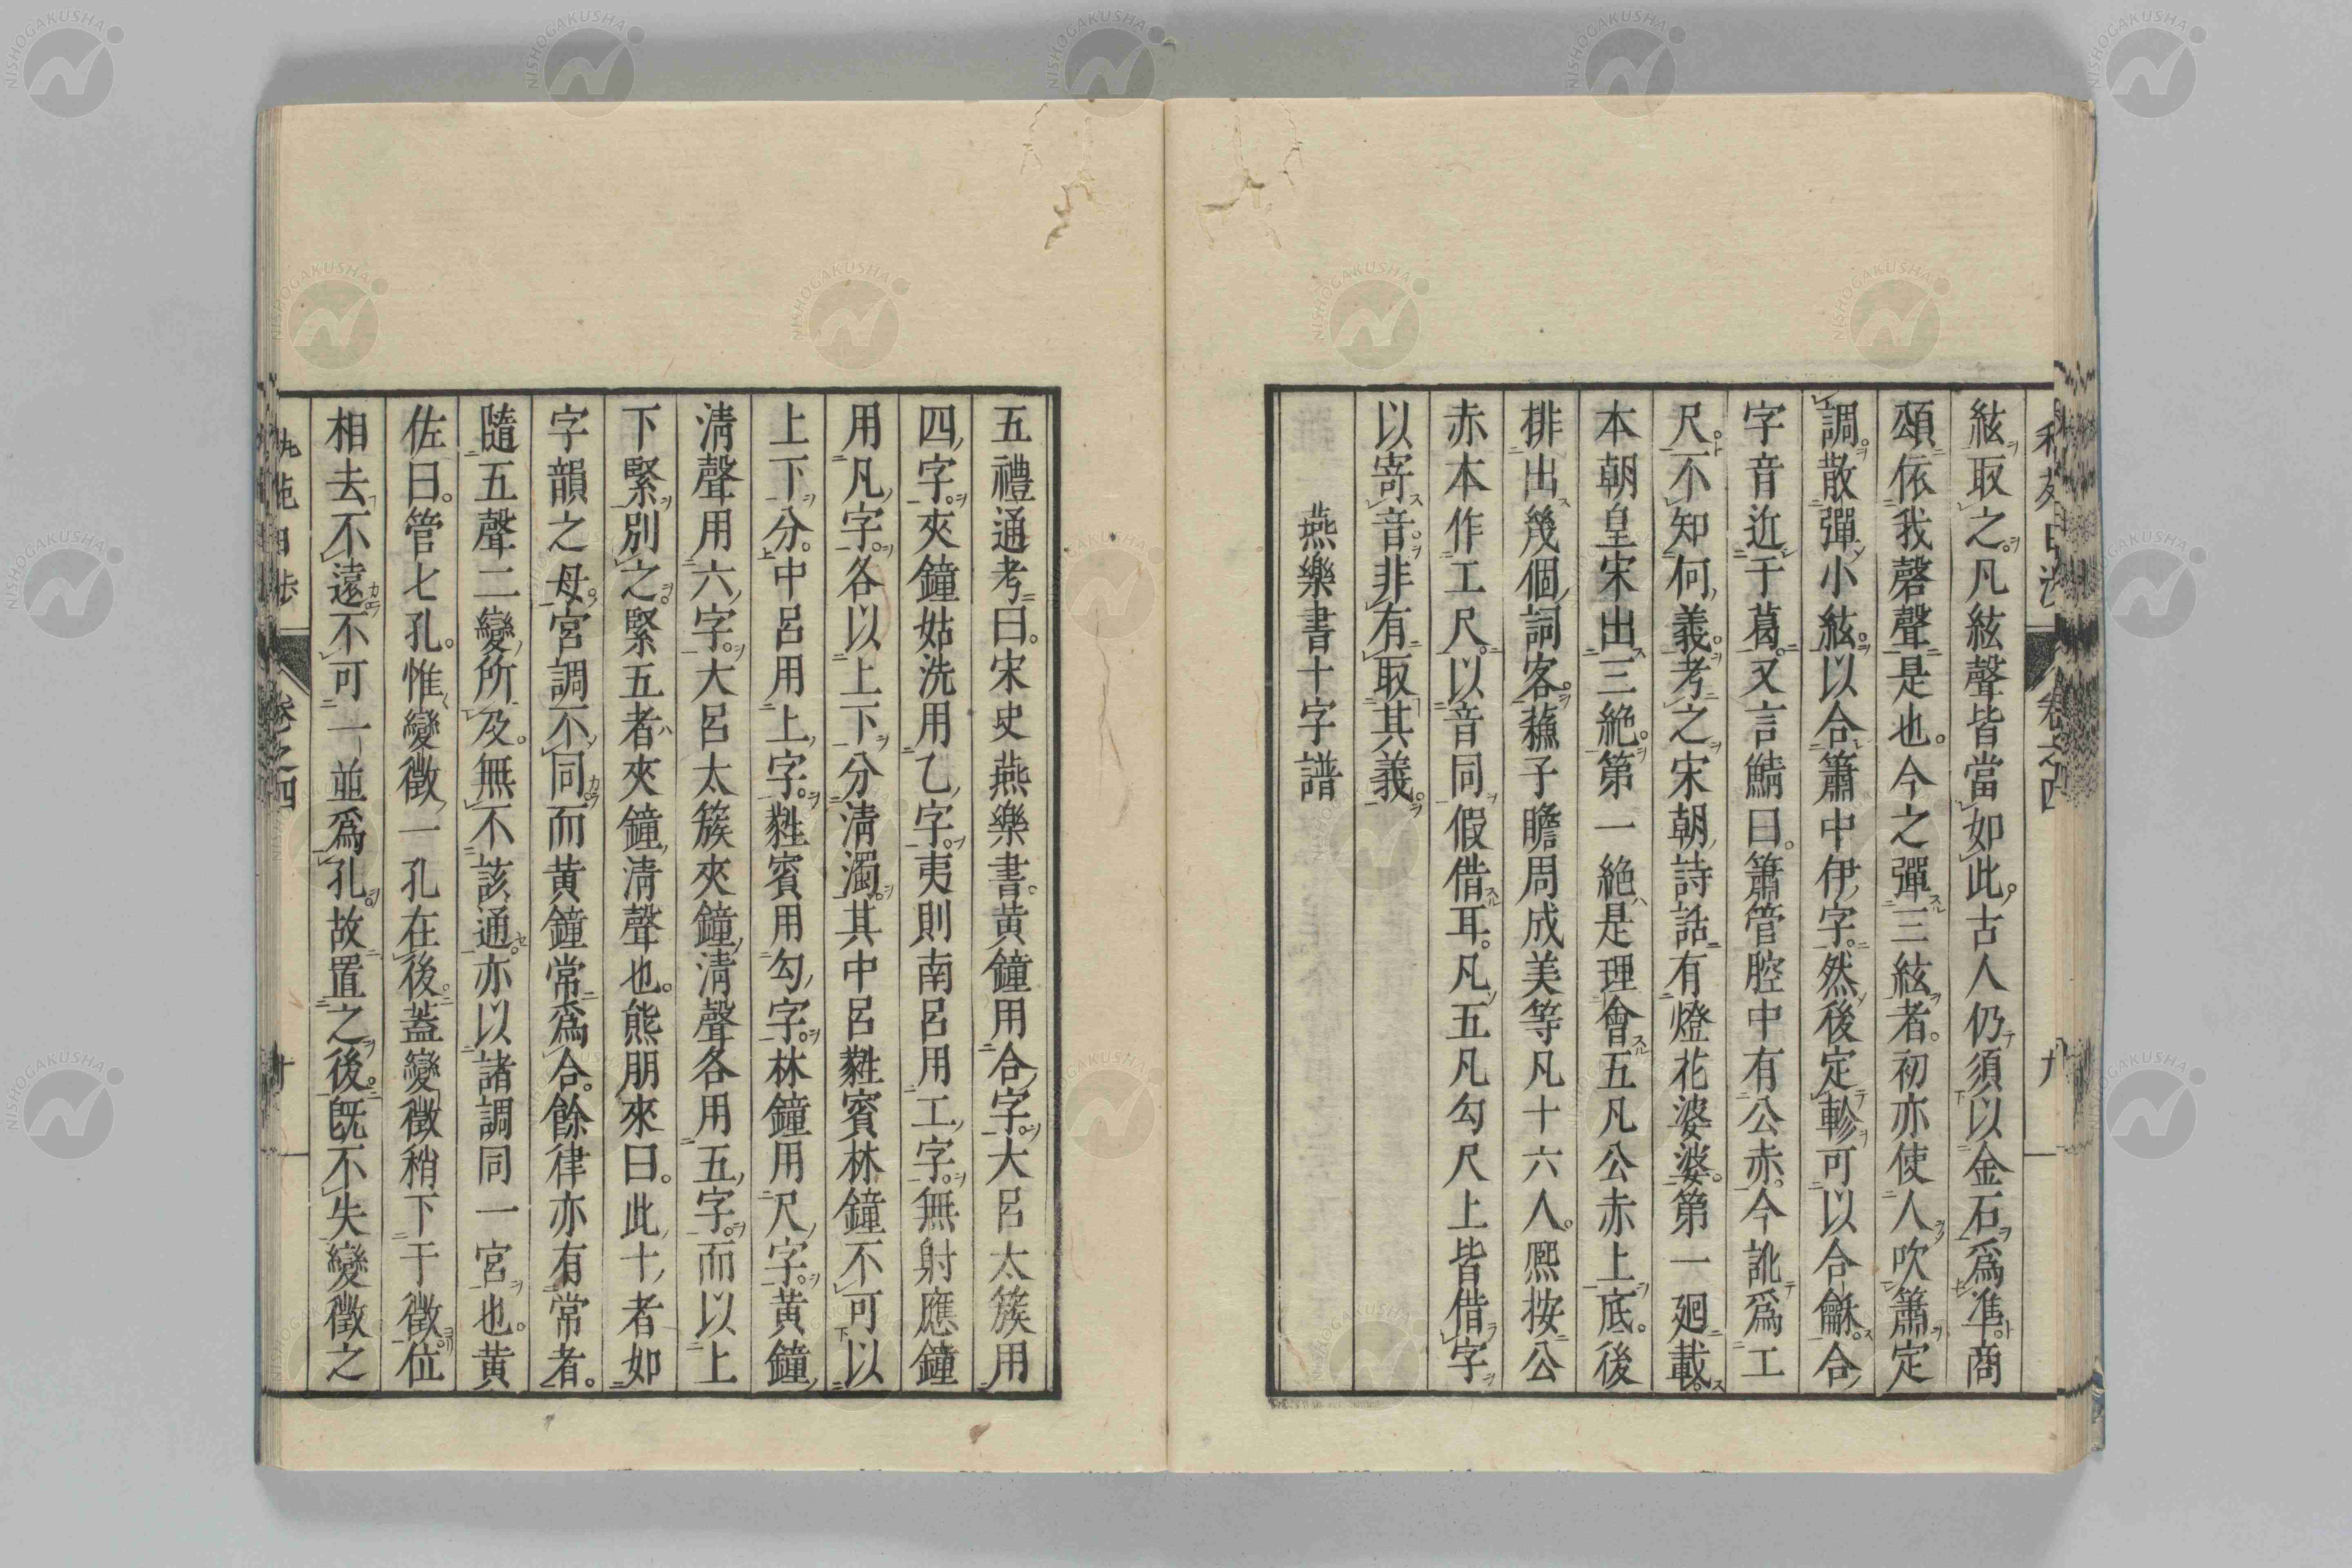 絃取之凡絃聲皆當如此古人仍須以金石爲準商
頌依我磬聲是也今之彈三絃者初亦使人吹簫定
調散彈小絃以合簫中伊字然後定軫可以合龢合
字音近于葛又言鯖曰簫管腔中有公赤今訛爲工
尺不知何義考之宋朝詩話有燈花婆婆第一廻載
本朝皇宋出三絶第一絶是理會五凡公赤上底後
排出幾個詞客蘓子瞻周成美等凡十六人熙按公
赤本作工尺以音同假借耳凡五凡勾尺上皆借字
以寄音非有取其義
燕樂書十字譜
卷之四
九
五禮通考曰宋史燕樂書黄鐘用合字大呂太簇用
四字夾鐘姑洗用乙字夷則南呂用工字無射應鐘
用凡字各以上下分清濁其中呂蕤賓林鐘不可以
上下分中呂用上字蕤賓用勾字林鐘用尺字黄鐘
清聲用六字大呂太簇夾鐘清聲各用五字而以上
下緊別之緊五者夾鐘清聲也熊朋來曰此十者如
字韻之母宮調不同而黄鐘常爲合餘律亦有常者
隨五聲二變所及無不該通亦以諸調同一宮也黄
佐曰管七孔惟變徵一孔在後葢變徵稍下于徵位
相去不遠不可一並爲孔故置之後旣不失變徵之
卷之四
十
NISHOGAKUSHA